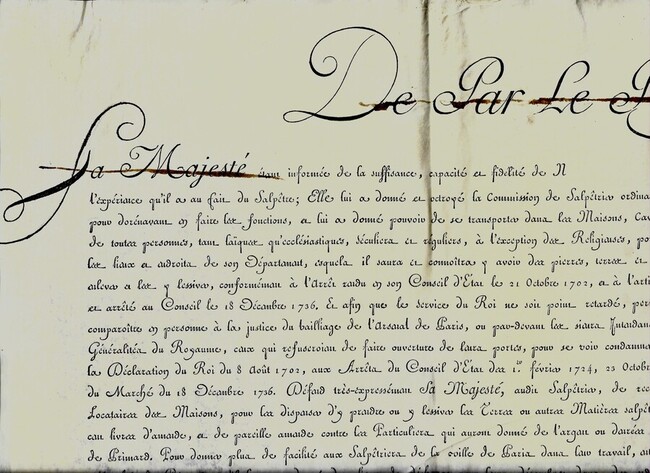 De Par Le R
Sa Majesté étant informée de la suffisance, capacité et fidélité de N
l'expérience qu'il a au fait du Salpêtre; Elle lui a donné et octroyé la Commission de Salpêtrier ordina
pour dorénavant en faire les fonctions, et lui a donné pouvoir de se transporter dans les Maisons, Cav
de toutes personnes, tant laïques qu'ecclésiastiques, séculiers et réguliers, à l'exception des Religieuses, po
les lieux et endroits de son Département, esquels il saura et connoîtra y avoir des pierres, terres et
enlever et les y lessiver, conformément à l'Arrêt rendu en son Conseil d'État le 21 Octobre 1702, et à l'arti
et arrêté au Conseil le 18 Décembre 1736. Et afin que le service du Roi ne soit point retardé, per
comparoître en personne à la justice du bailliage de l'Arsenal de Paris, ou par-devant les sieurs Intendan
Généralités du Royaume, ceux qui refuseroient de faire ouverture de leurs portes, pour se voir condamne
la Déclaration du Roi du 8 Août 1702, aux Arrêts du Conseil d'État des 1.er février 1724, 23 Octobre
du Marché du 18 Décembre 1736. Défend très-expressément Sa Majesté, audit Salpêtrier, de rec
Locataires des Maisons, pour les dispenser d'y prendre ou y lessiver les Terres ou autres Matières salpêt
cent livres d'amende, et de pareille amende contre les Particuliers qui auront donné de l'argent ou denrées
de Primard. Pour donner plus de facilité aux Salpêtriers de la ville de Paris dans leur travail, au